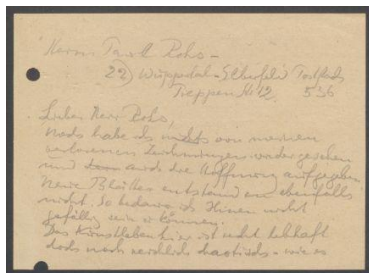 Herrn Paul Rohs -
22) Wuppertal-Elberfeld Postfach
Treppen No 12 536
Lieber Herr Rohs,
Noch habe ich nichts von meinen
verlorenen Zeichnungen wieder gesehen
und auch die Hoffnung aufgegeben.
Neue Blätter entstanden ebenfalls
nicht. So bedaure ich Ihnen nicht
gefällig sein zu können.
Das Kunstleben hier ist recht lebhaft
doch noch reichlich chaotisch - wie es